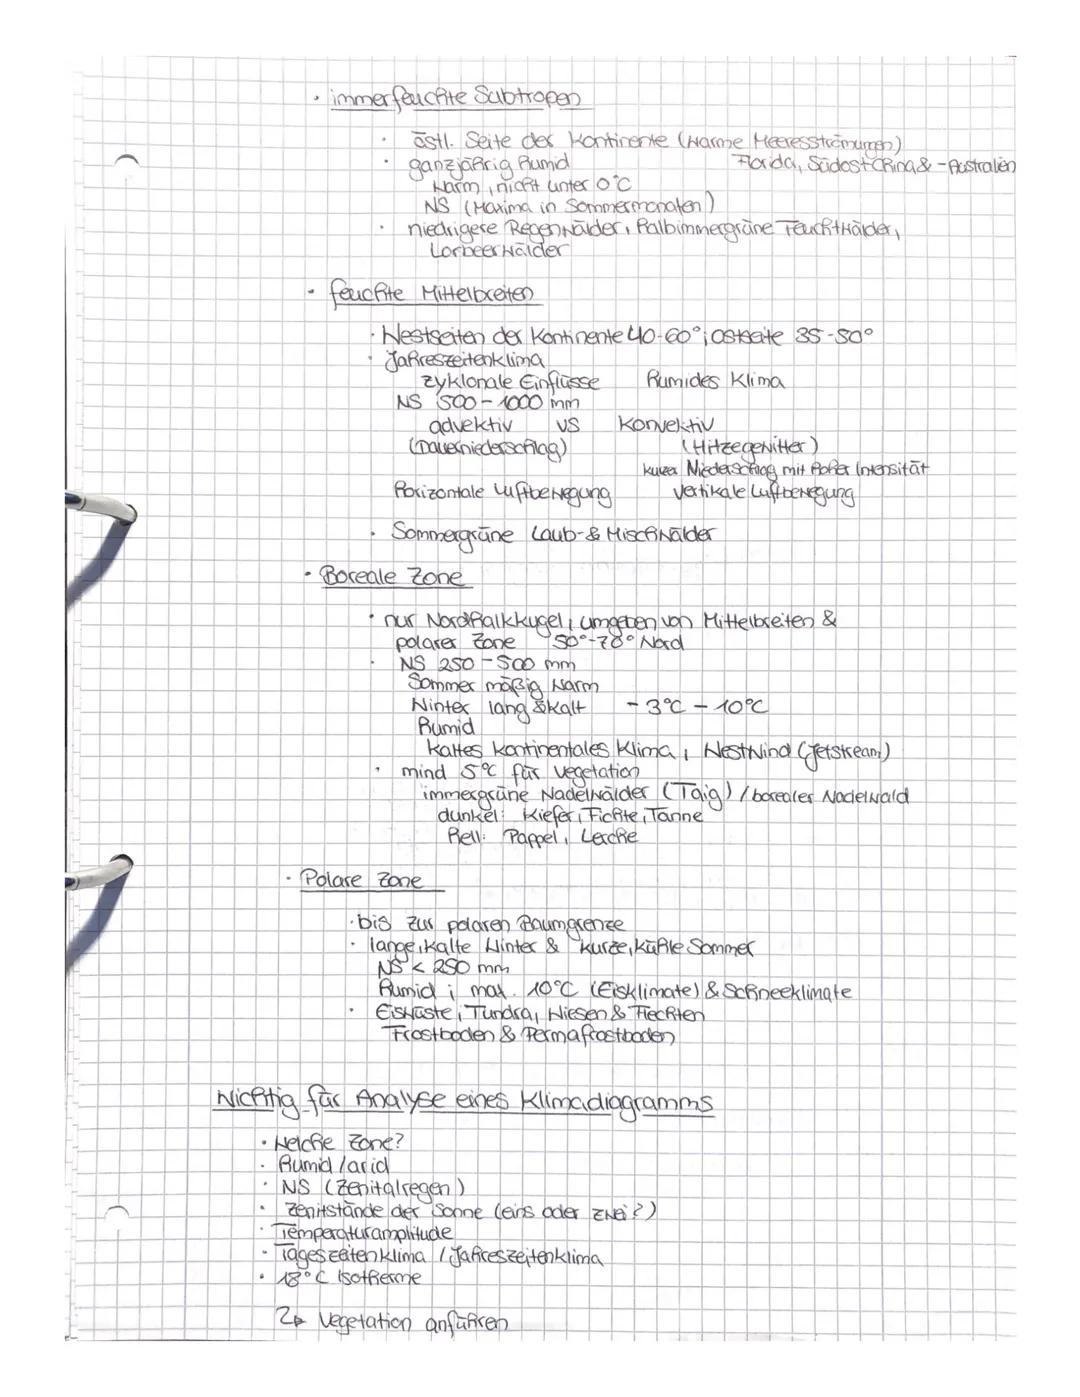 · immerfeuchte Subtropen
· östl. Seite der Kontinente (warme Meeresströmungen)
· ganzjährig humid Florida, Südost China & -Australien
warm, nicht unter 0°C
NS (Maxima in Sommermonaten)
· niedrigere Regenwälder, halbimmergrüne Feuchtwälder,
Lorbeerwälder
· feuchte Mittelbreiten
· Westseiten der Kontinente 40-60°; Ostseite 35-50°
· Jahreszeitenklima
zyklonale Einflüsse humides Klima
NS 500-1000 mm
advektiv VS konvektiv
(Dauerniederschlag) (Hitzegewitter)
kurzer Niederschlag mit hoher Intensität
horizontale Luftbewegung vertikale Luftbewegung
· Sommergrüne Laub- & Mischwälder
· Boreale Zone
· nur Nordhalkkugel, umgeben von Mittelbreiten &
polarer Zone 50°-70° Nord
· NS 250-500 mm
Sommer mäßig warm
Winter lang & kalt -3°C - 10°C
humid
kaltes kontinentales Klima, Westwind (Jetstream)
· mind 5°C für Vegetation
immergrüne Nadelwälder (Taig) / borealer Nadelwald
dunkel: Kiefer, Fichte, Tanne
hell: Pappel, Lerche
· Polare Zone
· bis zur polaren Baumgrenze
· lange, kalte Winter & kurze, kühle Sommer
NS < 250 mm
humid; max. 10°C (Eisklimate) & Schneeklimate
· Eiswüste, Tundra, Wiesen & Flechten
Frostboden & Permafrostboden
Wichtig für Analyse eines Klimadiagramms
· Welche Zone?
· humid / arid
· NS (Zenitalregen)
· Zenitstände der Sonne (eins oder zwei?)
· Temperaturamplitude
· Tageszeitenklima / Jahreszeitenklima
· 18°C Isotherme
↳ Vegetation anführen